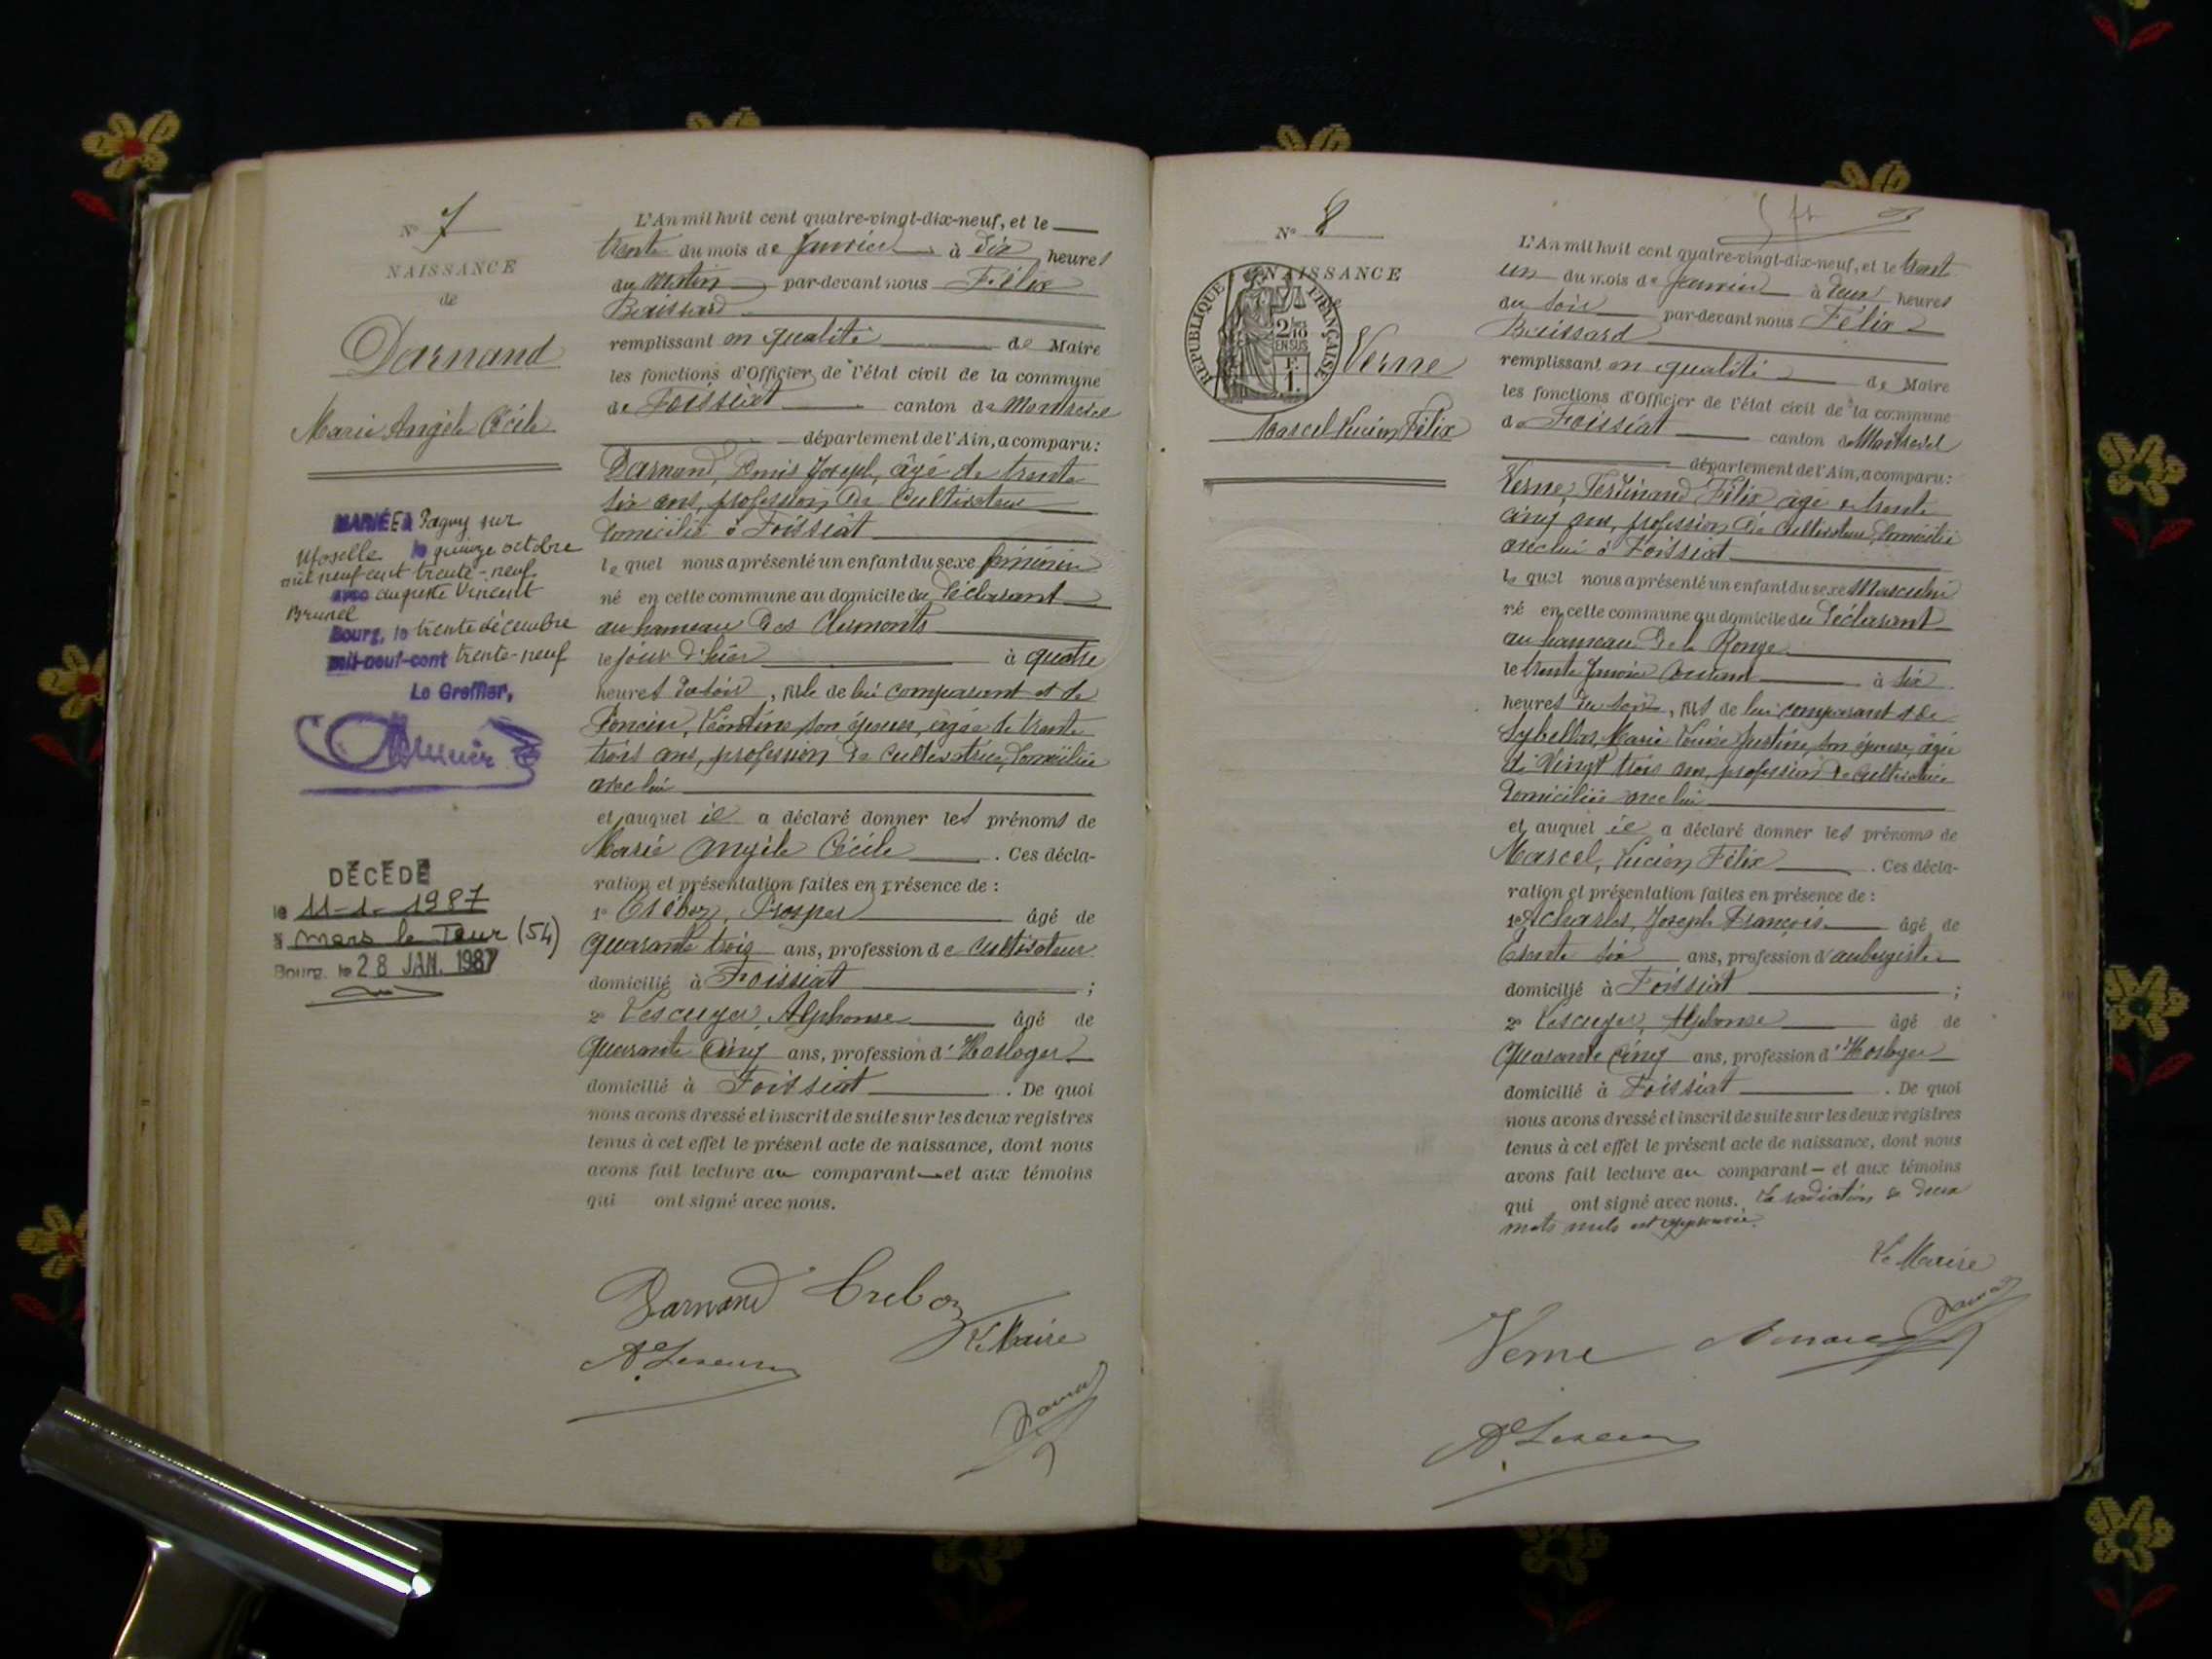 N° 7
NAISSANCE
de
Darnand
Marie Angèle Cécile
MARIÉE à Pagny sur
Moselle le quinze octobre
mil neuf cent trente-neuf
avec Auguste Vincent
Brunel
Bourg, le trente décembre
mil-neuf-cent trente-neuf
Le Greffier,
DÉCÉDÉ
le 11-1-1987
à Mars la Tour (54)
Bourg, le 28 JAN. 1987
L'An mil huit cent quatre-vingt-dix-neuf, et le
trente du mois de Janvier à dix heures
du matin par-devant nous Félix
Bouissard
remplissant en qualité de Maire
les fonctions d'Officier de l'état civil de la commune
de Foissiat canton de Montrevel
département de l'Ain, a comparu :
Darnand, Denis Joseph, âgé de trente
six ans, profession de Cultivateur
domicilié à Foissiat
le quel nous a présenté un enfant du sexe féminin
né en cette commune au domicile du déclarant
au hameau des
le jour d'hier à quatre
heures du soir, fille de lui comparant et de
Poncin, Léontine son épouse, âgée de trente
trois ans, profession de cultivatrice, domiciliée
avec lui
et auquel il a déclaré donner les prénoms de
Marie Angèle Cécile. Ces décla-
ration et présentation faites en présence de :
1° Créboz, Prosper âgé de
quarante trois ans, profession de cultivateur
domicilié à Foissiat ;
2° Lescuyer, Alphonse âgé de
quarante cinq ans, profession d'Horloger
domicilié à Foissiat. De quoi
nous avons dressé et inscrit de suite sur les deux registres
tenus à cet effet le présent acte de naissance, dont nous
avons fait lecture au comparant — et aux témoins
qui ont signé avec nous.
Darnand Creboz
Le Maire
N° 8
NAISSANCE
REPUBLIQUE FRANÇAISE
2/10
EN SUS
F.
1.
Verne
Marcel Lucien Félix
L'An mil huit cent quatre-vingt-dix-neuf, et le trente
un du mois de Janvier à deux heures
du soir par-devant nous Félix
Bouissard
remplissant en qualité de Maire
les fonctions d'Officier de l'état civil de la commune
de Foissiat canton de Montrevel
département de l'Ain, a comparu :
Verne, Ferdinand Félix âgé de trente
cinq ans, profession de cultivateur, domicilié
avec lui à Foissiat
le quel nous a présenté un enfant du sexe Masculin
né en cette commune au domicile du déclarant
au hameau de la Ronge
le trente Janvier courant à six
heures du soir, fils de lui comparant et de
Marie Louise Justine, son épouse, âgée
de vingt trois ans, profession de cultivatrice
domiciliée avec lui
et auquel il a déclaré donner les prénoms de
Marcel, Lucien, Félix. Ces décla-
ration et présentation faites en présence de :
1° Joseph François âgé de
trente six ans, profession d'aubergiste
domicilié à Foissiat ;
2° Lescuyer, Alphonse âgé de
quarante cinq ans, profession d'Horloger
domicilié à Foissiat. De quoi
nous avons dressé et inscrit de suite sur les deux registres
tenus à cet effet le présent acte de naissance, dont nous
avons fait lecture au comparant — et aux témoins
qui ont signé avec nous. La radiation de deux
mots nuls est approuvée.
Le Maire
Verne